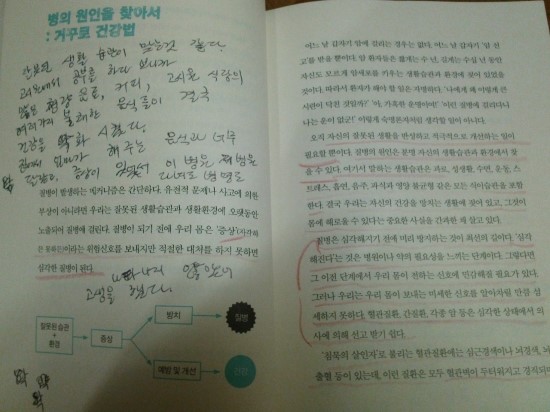 병의 원인을 찾아서
: 거꾸로 건강법
잘못된 생활 습관이 맞는것 같다
공부를 하다 보니까
많은 커피, 고시원 식당의
음식들이 결국
건강을 악화 시켰다
집에서 엄마가 해주는 음식과 너무
이 병은
질병이 발생하는 메커니즘은 간단하다. 유전적 문제나 사고에 의한
부상이 아니라면 우리는 잘못된 생활습관과 생활환경에 오랫동안
노출되어 질병에 걸린다. 질병이 되기 전에 우리 몸은 '증상'(지각하
든 못하든)이라는 위험신호를 보내지만 적절한 대처를 하지 못하면
심각한 질병이 된다.
고생을 했다.
잘못된 습관
+
환경
증상
방치
질병
예방 및 개선
건강
어느 날 갑자기 암에 걸리는 경우는 없다. 어느 날 갑자기 '암 선
고'를 받을 뿐이다. 암 환자들은 짧게는 수 년, 길게는 수십 년 동안
자신도 모르게 암세포를 키우는 생활습관과 환경에 젖어 있었을
것이다. 따라서 환자가 해야 할 일은 자명하다. '나에게 왜 이렇게 큰
시련이 닥친 것일까?' '아, 가혹한 운명이여!' '이런 질병에 걸리다니
나는 운이 없군!' 이렇게 숙명론자처럼 생각할 일이 아니다.
오직 자신의 잘못된 생활을 반성하고 적극적으로 개선하는 일이
필요할 뿐이다. 질병의 원인은 분명 자신의 생활습관과 환경에서 찾
을 수 있다. 여기서 말하는 생활습관은 과로, 성생활, 수면, 운동, 스
트레스, 흡연, 음주, 과식과 영양 불균형 같은 모든 식이습관을 포함
한다. 결국 우리는 자신의 건강을 망치는 생활에 젖어 있고, 그것이
몸에 해로울 수 있다는 중요한 사실을 간과한 채 살고 있다.
질병은 심각해지기 전에 미리 방지하는 것이 최선의 길이다. '심각
해진다'는 것은 병원이나 약의 필요성을 느끼는 단계이다. 그렇다면
그 이전 단계에서 우리 몸이 전하는 신호에 민감해질 필요가 있다.
그러나 우리는 우리 몸이 보내는 미세한 신호를 알아차릴 만큼 섬
세하지 못하다. 혈관질환, 간질환, 각종 암 등은 심각한 상태에서 의
사에 의해 선고 받기 쉽다.
'침묵의 살인자'로 불리는 혈관질환에는 심근경색이나 뇌경색, 뇌
출혈 등이 있는데, 이런 질환은 모두 혈관벽이 두터워지고 경직되며